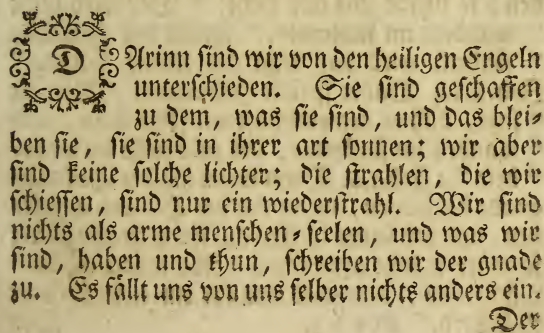 DArinn sind wir von den heiligen Engeln
unterschieden. Sie sind geschaffen
zu dem, was sie sind, und das blei⸗
ben sie, sie sind in ihrer art sonnen; wir aber
sind keine solche lichter; die strahlen, die wir
schiessen, sind nur ein wiederstrahl. Wir sind
nichts als arme menschen⸗seelen, und was wir
sind, haben und thun, schreiben wir der gnade
zu. Es fällt uns von uns selber nichts anders ein.
Der